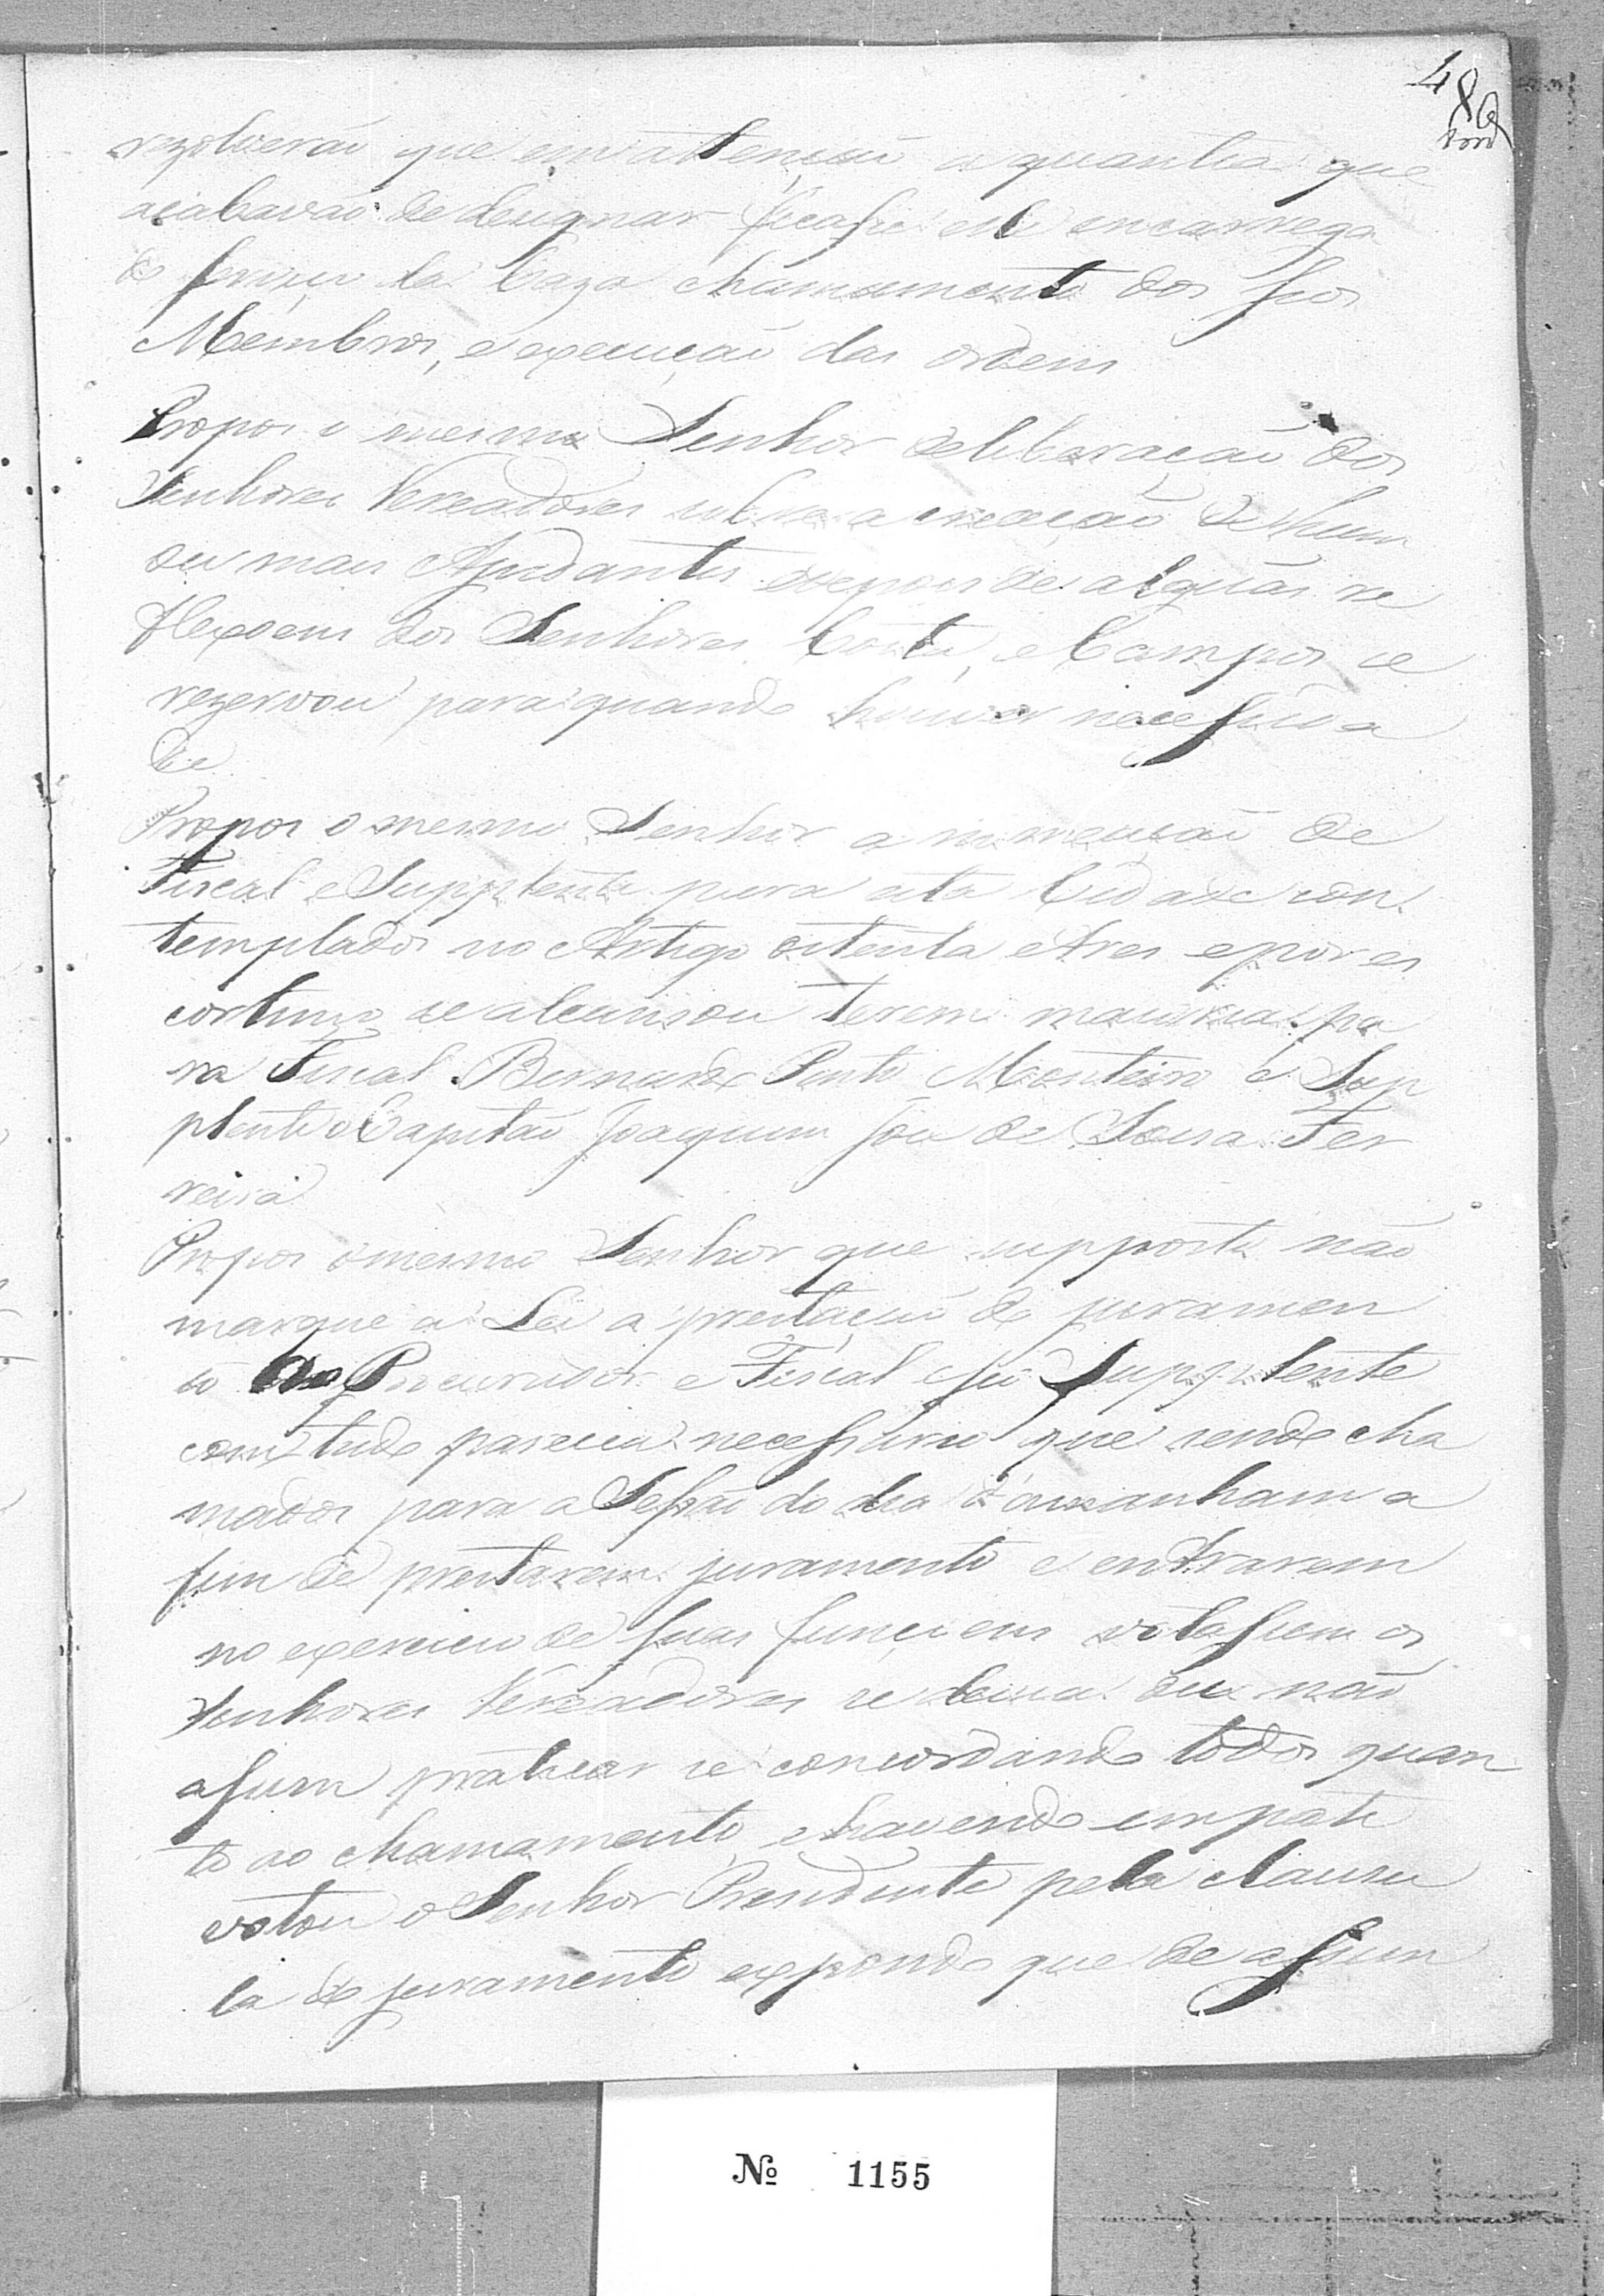 48
rezolverão que em attenção a quantia que
acabavão de designar ficasse elle encarrega
do serviço da Caza chamamento dos seos
Membros, e execução das ordens
Propos o mesmo Senhor deliberação dos
Senhores Vereadores sobre a creação de hum
ou mais Ajudantes e depois de alguãs re
flexoens dos Senhores Costa, e Campos se
rezervou para quando houver necessida
de
Propos o mesmo Senhor a nomeação de
Fiscal e Supplente para esta Cidade con
templados no Artigo oitenta e tres e por es
cortinio se alcansou terem maioria pa
ra Fiscal Bernardo Pinto Monteiro e Sup
plente o Capitão Joaquim José de Sousa Fer
reira
Propos o mesmo Senhor que supposto não
marque a Lei a prestação de juramen
to ao Procurador e Fiscal e seo Supplente
com tudo parecia necessario que sendo cha
mados para a Sessão do dia d'amanham a
fim de prestarem juramento e entrarem
no exercicio de suas funçoens votassem os
Senhores Vereadores se devia ou não
assim praticar se concordando todos quan
to ao chamamento, e havendo empate
votou o Senhor Presidente pela clausu
la do juramento expondo que de assim
Nº 1155